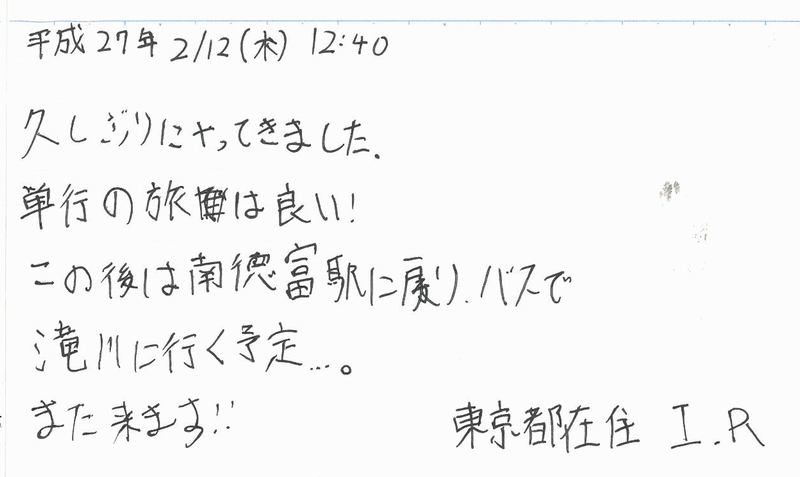 平成27年 2/12(木) 12:40
久しぶりにやってきました.
単行の旅は良い!
この後は南徳富駅に戻り.バスで
滝川に行く予定…。
また来ます!!
東京都在住 I.R